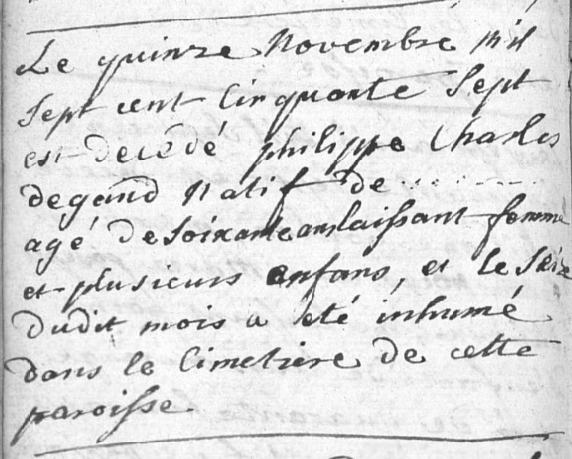 Le quinze Novembre mil
sept cent cinquante sept
est decédé philippe Charles
degand natif de ---------
agé de soixante ans laissant femme
et plusieurs enfans, et le seize
dudit mois a été inhumé
dans le Cimetiere de cette
paroisse.